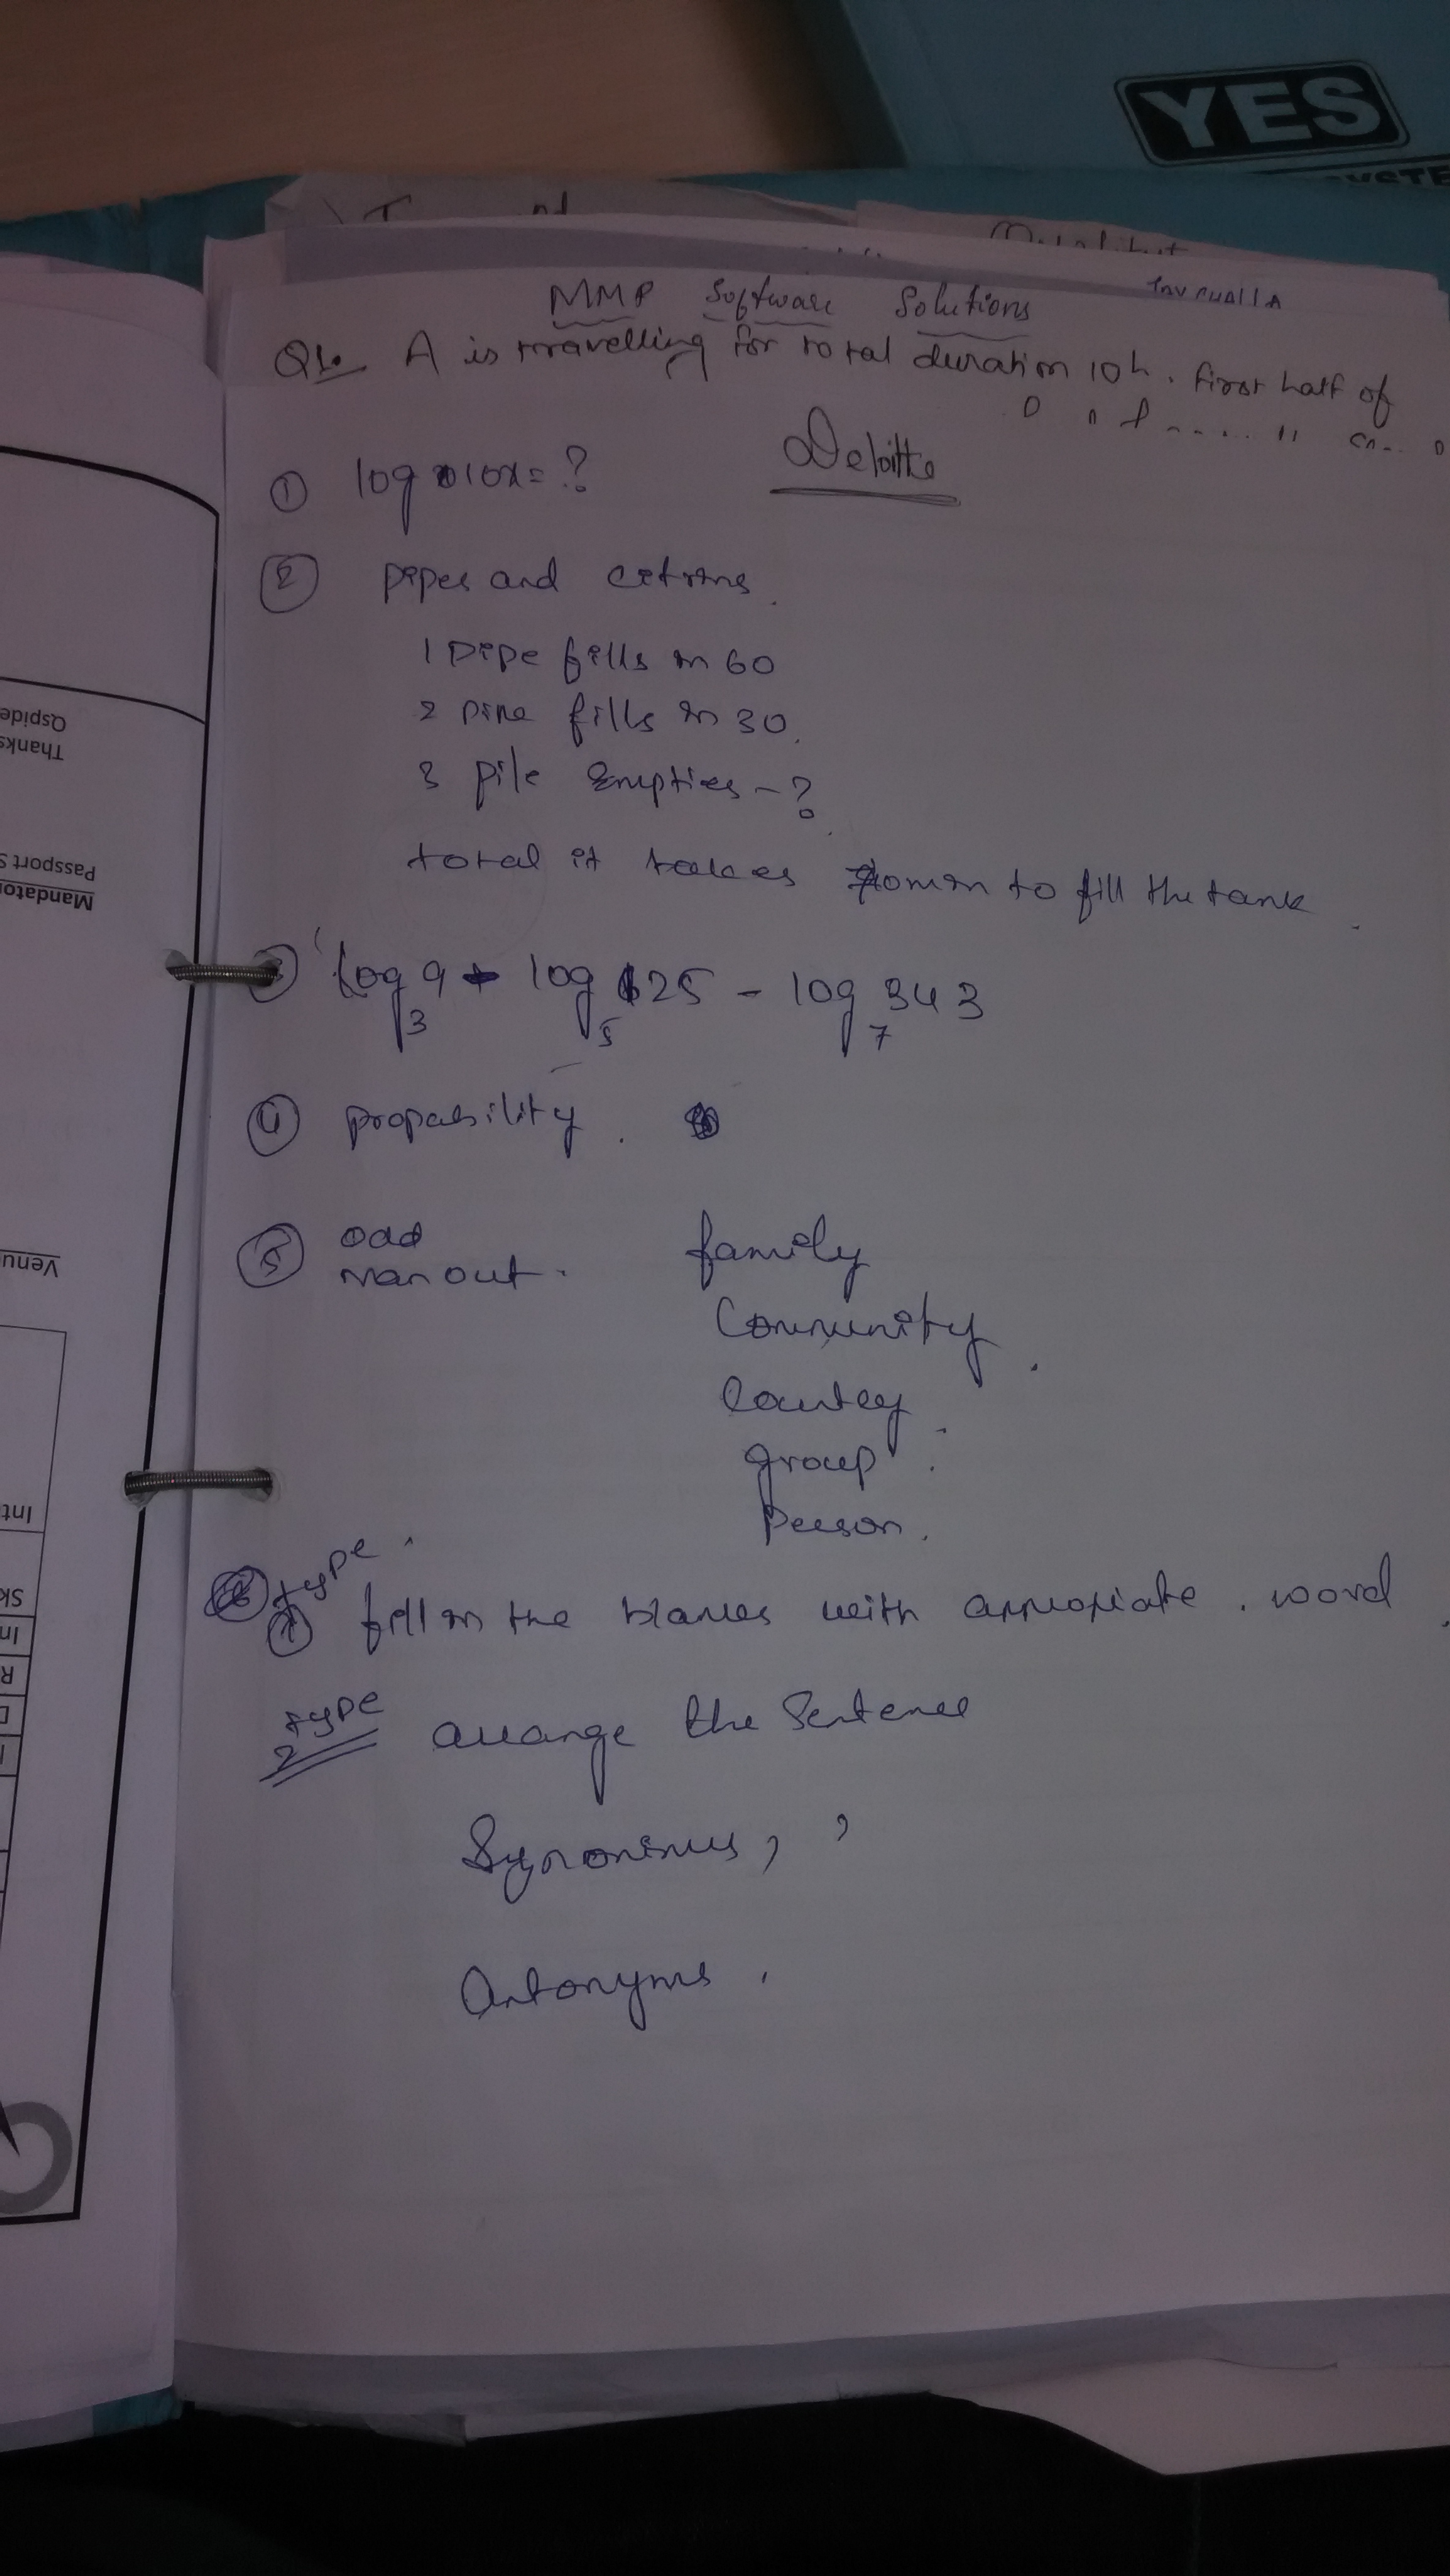 YES
MMP Software Solutions
Q1. A is travelling for total duration 10h. first half of
Deloitte
① log 10x = ?
② pipes and
1 pipe fills in 60
2 pipe fills in 30.
3 pile Empties - ?
total it takes to fill the tank.
③ log₃ 9 log₅ 125 - log₇ 343
④ propability.
⑤ odd
man out.
family
Community.
Country.
group.
person.
type
① fill in the blanks with appropiate. word.
type
2 arrange the Sentence
Synonims,,
Antonyms.
Qspide
Thanks
Passport S
Mandato
Venu
Int
Sk
In
R